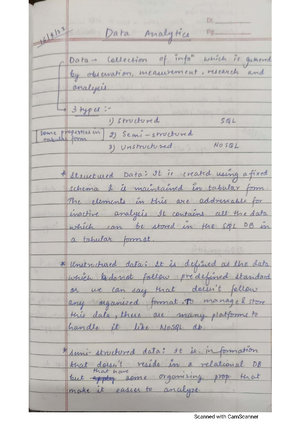 Data Analytics
Data → Collection of info^n which is gained
by observation, measurement, research and
analysis
3 types :-
1) Structured SQL
2) Semi-structured
3) Unstructured NoSQL
Some properties in
tabular form
* Structured Data: It is created using a fixed
schema & is maintained in tabular form
The elements in this are addressable for
inactive analysis It contains all the data
which can be stored in the SQL DB in
a tabular format.
* Unstructured data: It is defined as the data
which follow pre-defined standard
or we can say that doesn't follow
any organised format. To manage & store
this data, there are many platforms to
handle it like NoSQL db.
* Semi-structured data: It is information
that doesn't reside in a relational DB
but that have some organising prop that
make it easier to analyse
Scanned with CamScanner